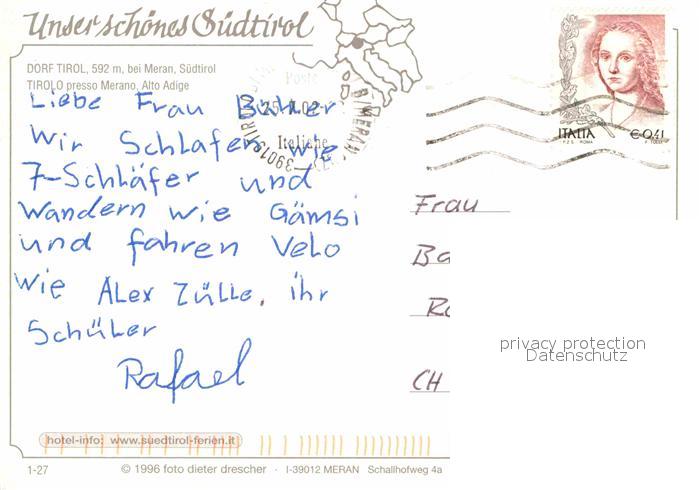 Unser schönes Südtirol
DORF TIROL, 592 m, bei Meran, Südtirol
TIROLO presso Merano, Alto Adige
Liebe Frau Bühler
Wir Schlafen wie
7-Schläfer und
Wandern wie Gämsi
und fahren Velo
wie Alex Zülle. ihr
Schüler
Rafael
Poste
Italiane
ITALIA €0,41
P.Z.S. ROMA
Frau
CH
privacy protection
Datenschutz
hotel-info: www.suedtirol-ferien.it
1-27 © 1996 foto dieter drescher · I-39012 MERAN Schallhofweg 4a